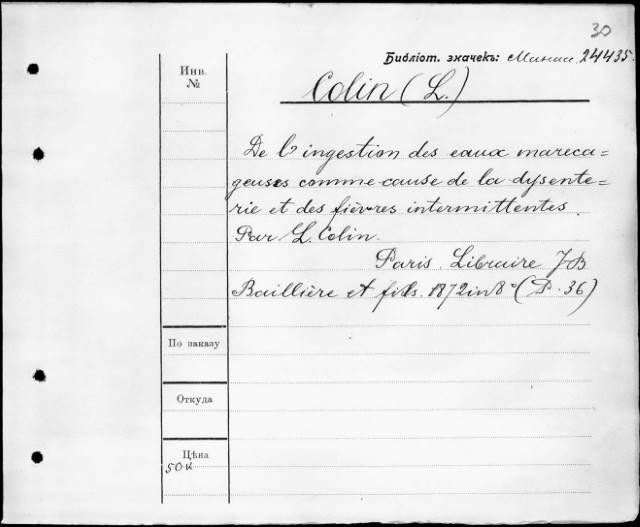 30
Библіот. значекъ: 24435.
Инв.
№
Colin (L.)
De l'ingestion des eaux mareca=
geuses comme cause de la dysente=
rie et des fièvres intermittentes.
Par L. Colin.
Paris. Libraire JB
Baillière et fils. 1872 in 8° (P. 36)
По заказу
Откуда
Цѣна
50к